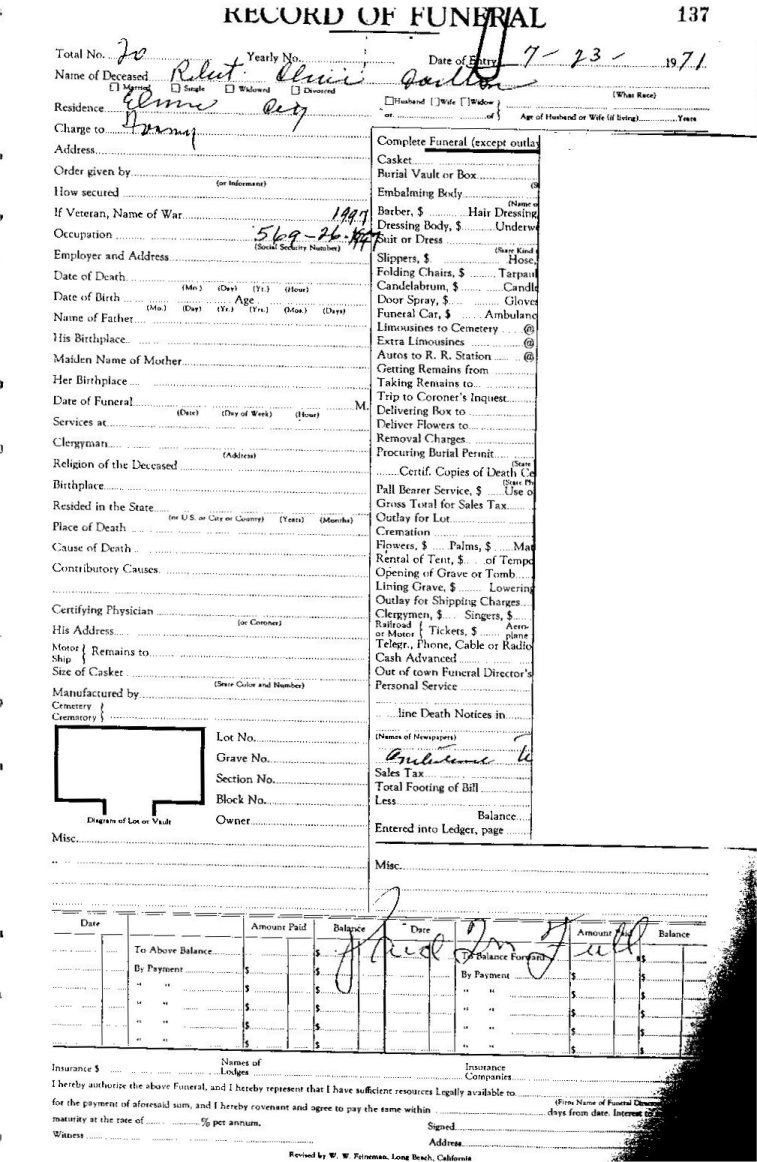 RECORD OF FUNERAL 137
Total No. 70 Yearly No. Date of Entry 7-23- 1971
Name of Deceased
☐ Married ☐ Single ☐ Widowed ☐ Divorced (What Race)
Residence ☐ Husband ☐ Wife ☐ Widow
or of Age of Husband or Wife (if living) Years
Charge to
Address
Order given by
(or Informant)
How secured
If Veteran, Name of War
Occupation 569-26-
(Social Security Number)
Employer and Address
Date of Death
(Mo.) (Day) (Yr.) (Hour)
Date of Birth Age
(Mo.) (Day) (Yr.) (Yrs.) (Mos.) (Days)
Name of Father
His Birthplace
Maiden Name of Mother
Her Birthplace
Date of Funeral M.
(Date) (Day of Week) (Hour)
Services at
Clergyman
(Address)
Religion of the Deceased
Birthplace
Resided in the State
(or U.S. or City or County) (Years) (Months)
Place of Death
Cause of Death
Contributory Causes
Certifying Physician
(or Coroner)
His Address
Motor
Ship Remains to
Size of Casket
(State Color and Number)
Manufactured by
Cemetery
Crematory
Lot No.
Grave No.
Section No.
Block No.
Diagram of Lot or Vault Owner
Misc.
Complete Funeral (except outlay
Casket
Burial Vault or Box
(S
Embalming Body
(Name o
Barber, $ Hair Dressing,
Dressing Body, $ Underwe
Suit or Dress
(State Kind
Slippers, $ Hose,
Folding Chairs, $ Tarpaul
Candelabrum, $ Candle
Door Spray, $ Gloves
Funeral Car, $ Ambulanc
Limousines to Cemetery @
Extra Limousines @
Autos to R. R. Station @
Getting Remains from
Taking Remains to
Trip to Coroner's Inquest
Delivering Box to
Deliver Flowers to
Removal Charges
Procuring Burial Permit
(State
Certif. Copies of Death Ce
(State Ph
Pall Bearer Service, $ Use o
Gross Total for Sales Tax
Outlay for Lot
Cremation
Flowers, $ Palms, $ Mat
Rental of Tent, $ of Tempo
Opening of Grave or Tomb
Lining Grave, $ Lowering
Outlay for Shipping Charges
Clergymen, $ Singers, $
Railroad Aero-
or Motor Tickets, $ plane
Telegr., Phone, Cable or Radio
Cash Advanced
Out of town Funeral Director's
Personal Service
line Death Notices in
(Names of Newspapers)
Ambulance
Sales Tax
Total Footing of Bill
Less
Balance
Entered into Ledger, page
Misc.
Date Amount Paid Balance Date Amount Paid Balance
Paid In Full
To Above Balance $ To Balance Forward $
By Payment $ $ By Payment $
" " $ $ " " $
" " $ $ " " $
" " $ $ " " $
" " $ $ " " $
Insurance $ Names of Lodges Insurance Companies
I hereby authorize the above Funeral, and I hereby represent that I have sufficient resources Legally available to
(Firm Name of Funeral Director
for the payment of aforesaid sum, and I hereby covenant and agree to pay the same within days from date. Interest
maturity at the rate of % per annum. Signed
Witness Address
Revised by W. W. Feineman, Long Beach, California